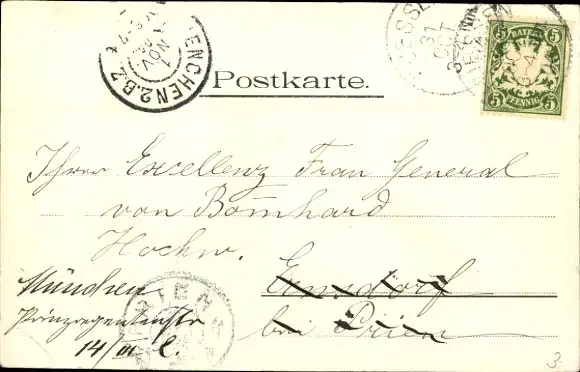 MUENCHEN 2.B.Z.
1 NOV
Postkarte.
31 OCT
BAYERN
5 5
PFENNIG
5 5
Ihrer Excellenz Frau General
von Bomhard
Hochw.
München Ernsdorf
Prinzregentenstr bei Prien
14/III l.
3.